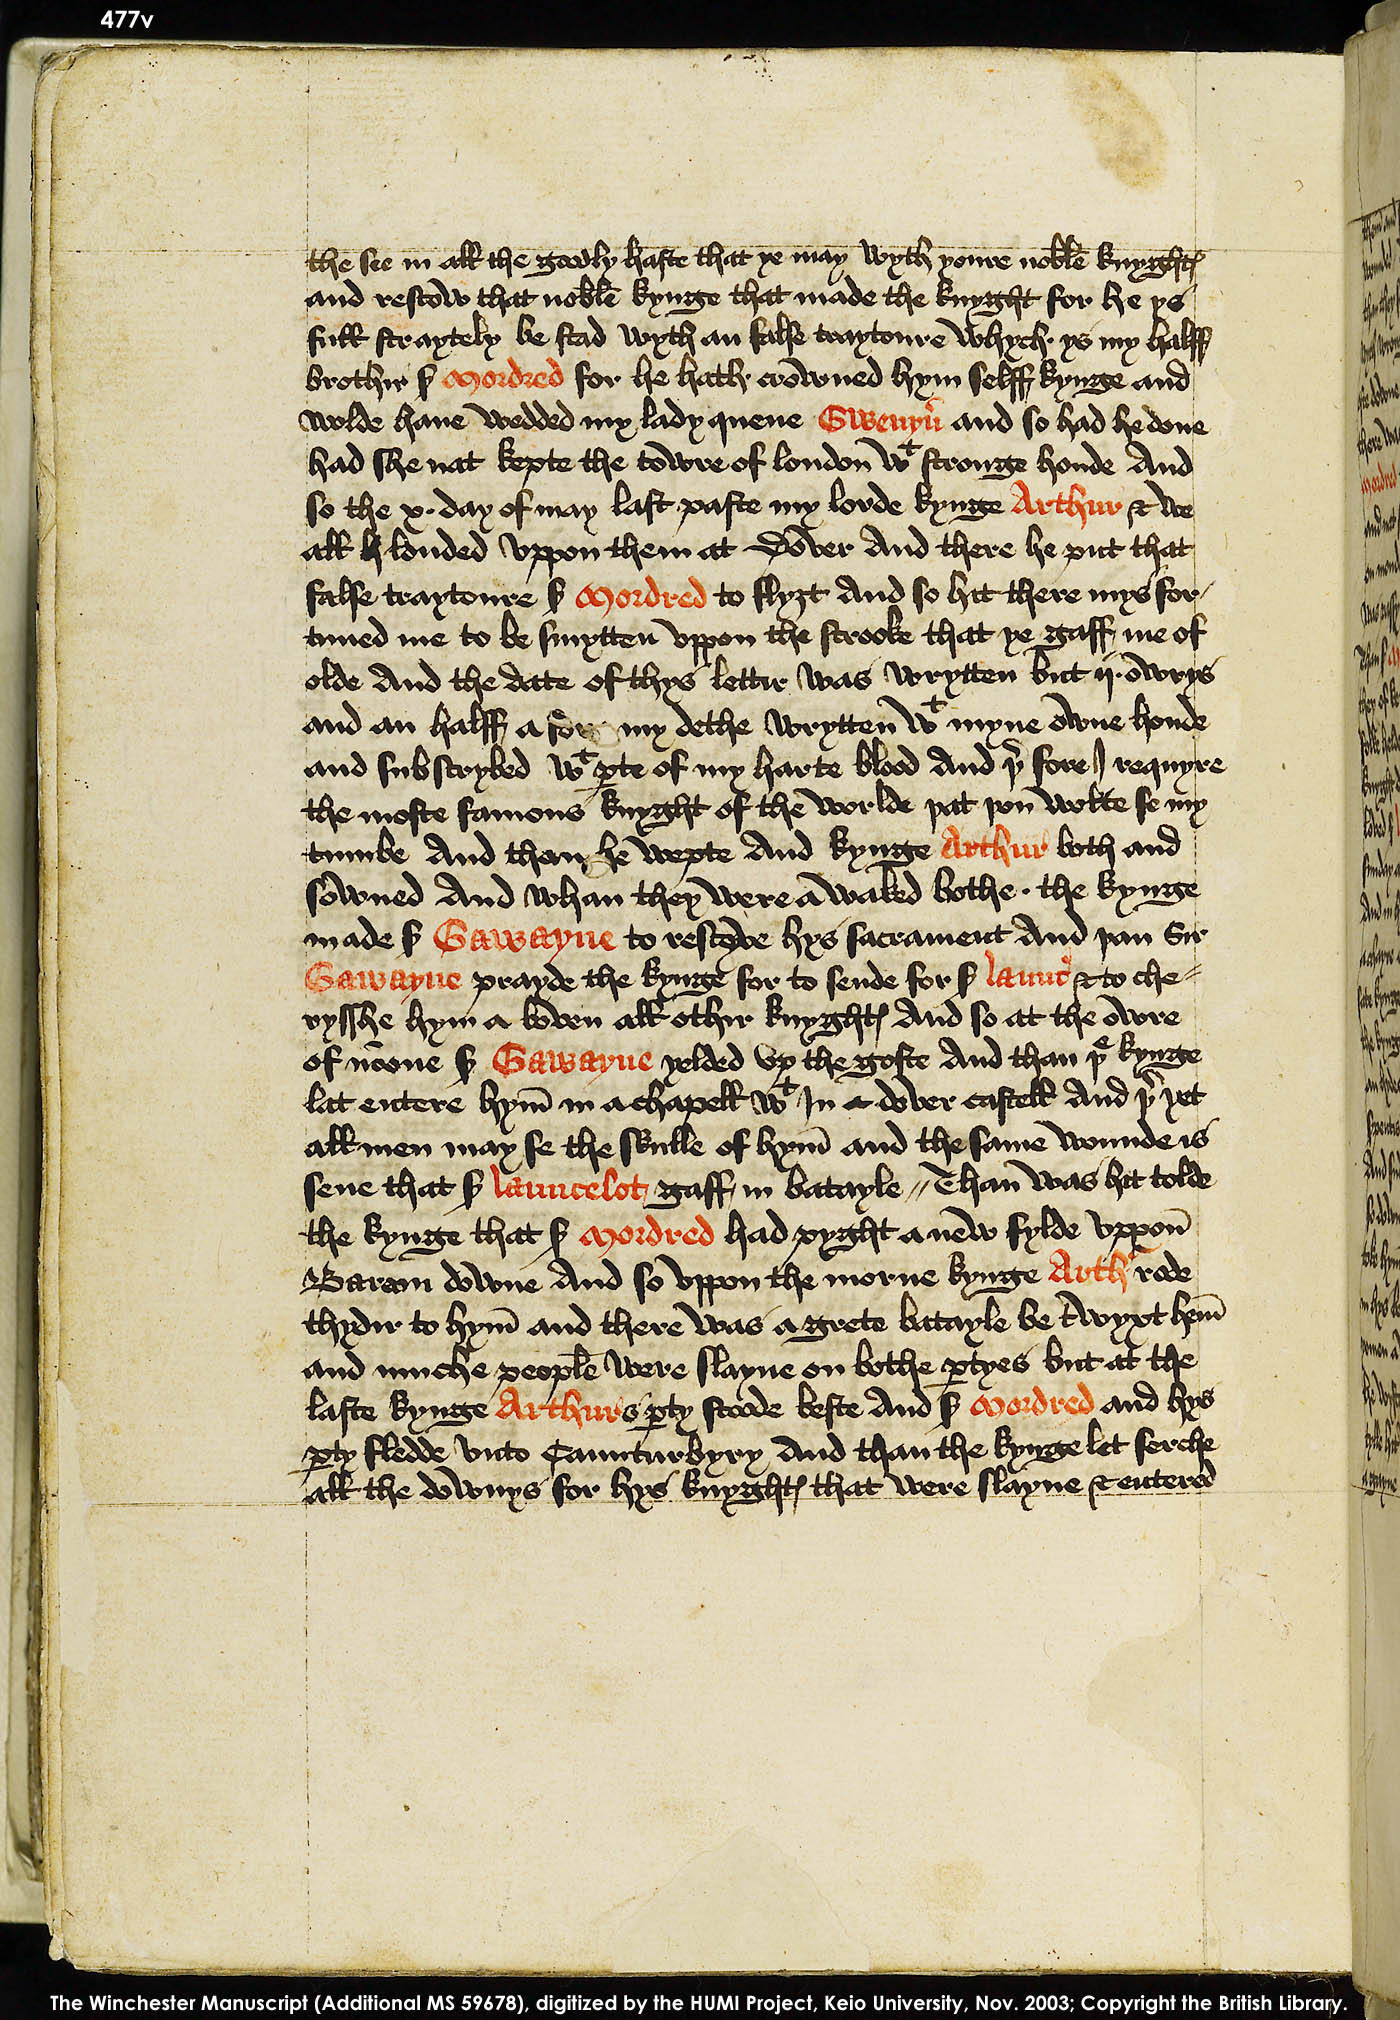 477v
the see in all the goodly haste that ye may wyth youre noble knyghtꝭ
and rescow that noble kynge that made the knyght for he ys
full straytely be stad wyth an false traytoure whych ys my halff
brothir ẜ Mordred for he hath crowned hym selff kynge and
wolde haue wedded my lady quene Gwenyu̓ and so had he done
had she nat kepte the towre of london wᵗ stronge honde And
so the x· day of may last paste my lorde kynge Arthur & we
all londed vppon them at Dover And there he put that
false traytoure ẜ Mordred to flyȝt And so hit there mys for-
tuned me to be smytten vppon the strooke that ye gaff me of
olde And the date of thys lettir was wrytten but ij· owrys
and an halff a fore my dethe wrytten wᵗ myne owne honde
and subscrybed wᵗ ꝑte of my harte blood And þ̓ fore I requyre
the moste famous knyght of the worlde þat þou wolte se my
tumbe And than he wepte And kynge Arthur both and
sowned And whan they were awaked bothe · the kynge
made ẜ Gawayne to resceyve hys sacrament And þan Sir
Gawayne prayde the kynge for to sende for ẜ launc̓ & to che=
rysshe hym a boven all othir knyghtꝭ And so at the owre
of noone ẜ Gawayne yelded vp the goste And than þᵉ kynge
lat entere hym̅ in a chapell wᵗ In dover castell And þ̓ yet
all men may se the skulle of hym̅ and the same wounde is
sene that ẜ launcelot gaff in batayle // Than was hit tolde
the kynge that ẜ Mordred had pyght a new fylde vppon̅
Baram downe And so vppon the morne kynge Arth̓ rode
thydir to hym̅ and there was a grete batayle be twyxt hem̅
and muche people were slayne on bothe ꝑtyes but at the
laste kynge Arthurs ꝑty stoode beste And ẜ Mordred and hys
ꝑty fledde vnto Caunturbyry And than the kynge let serche
all the downys for hys knyghtꝭ that were slayne & entered
The Winchester Manuscript (Additional MS 59678), digitized by the HUMI Project, Keio University, Nov. 2003; Copyright the British Library.